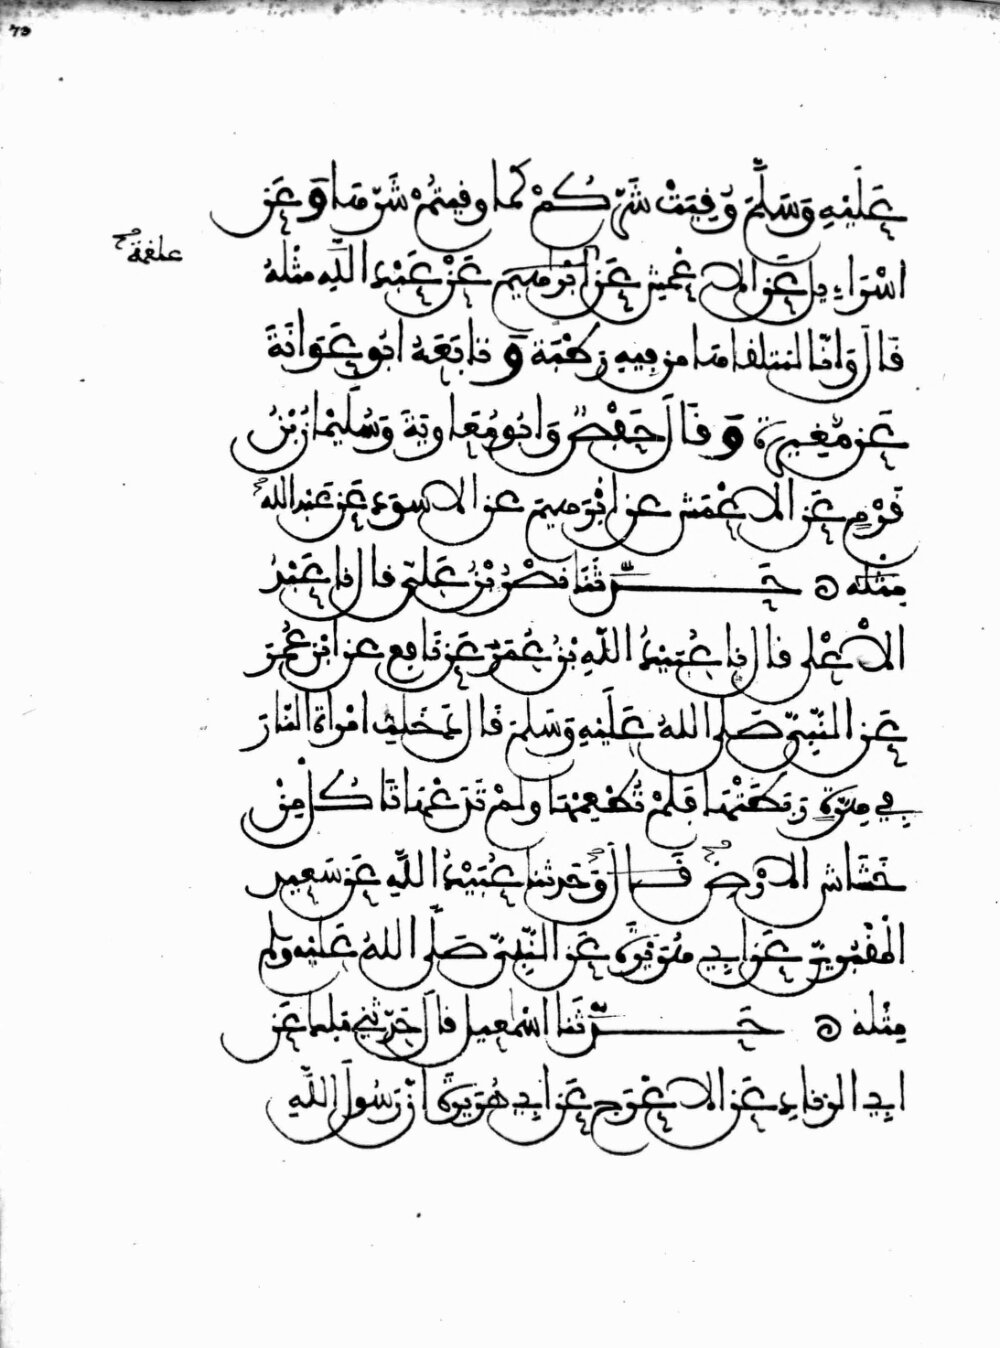 73
عَلَيْهِ وَسَلَّمَ وُقِيَتْ شَرَّكُمْ كَما وُقِيتُمْ شَرَّهَا وَعَنْ
علقمة صح
اسْرَاءِيلَ عَنِ الاعْمَشِ عَنْ ابْرَهِيمَ عَنْ عَبْدِ اللَّهِ مِثْلَهُ
قَالَ وَانَّا لنتلقاهَا من فِيهِ رَطْبَة وَتابَعَهُ ابُو عَوَانَةَ
عَن مُغِيرَة وَقَالَ حَفْصٌ وَابُو مُعَاوِيَةَ وَسُلَيْمَانُ بْنُ
قَرْمٍ عَنِ الاعْمَش عن ابْرَهِيمَ عن الاسْوَدِ عَن عَبد الله
مِثْلَه ه حَدَّثَنَا نَصْرُ بْنُ عَلِيّ قال نا عَبْدُ
الاعْلى قال نا عُبَيْدُ اللَّهِ بْنُ عُمَرَ عَن نَافِعٍ عن ابْنِ عُمَرَ
عَنِ النَّبِيِّ صَلى اللهُ عَلَيْهِ وَسَلمَ قَالَ دَخَلَتِ امْرَاة النَّارَ
فِي هِرَّةٍ رَبَطَتْهَا فَلَمْ تُطْعِمْهَا وَلَمْ تَدَعْهَا تَاكُل مِنْ
خَشَاشِ الارْضِ قَالَ وَحدثنا عُبَيْدُ اللَّهِ عَن سَعِيد
الْمَقْبُرِيّ عَن ابِي هُرَيْرَةَ عَنِ النَّبِيِّ صَلَّى اللهُ عَلَيْهِ وَسلم
مِثْلَهُ ه حَدَّثَنَا اسْمَعِيل قَالَ حَدَّثَنِي مَلِك عَن
ابِي الزنَادِ عَنِ الاعْرَجِ عَن ابِي هُرَيْرَةَ انَّ رَسُولَ اللَّهِ